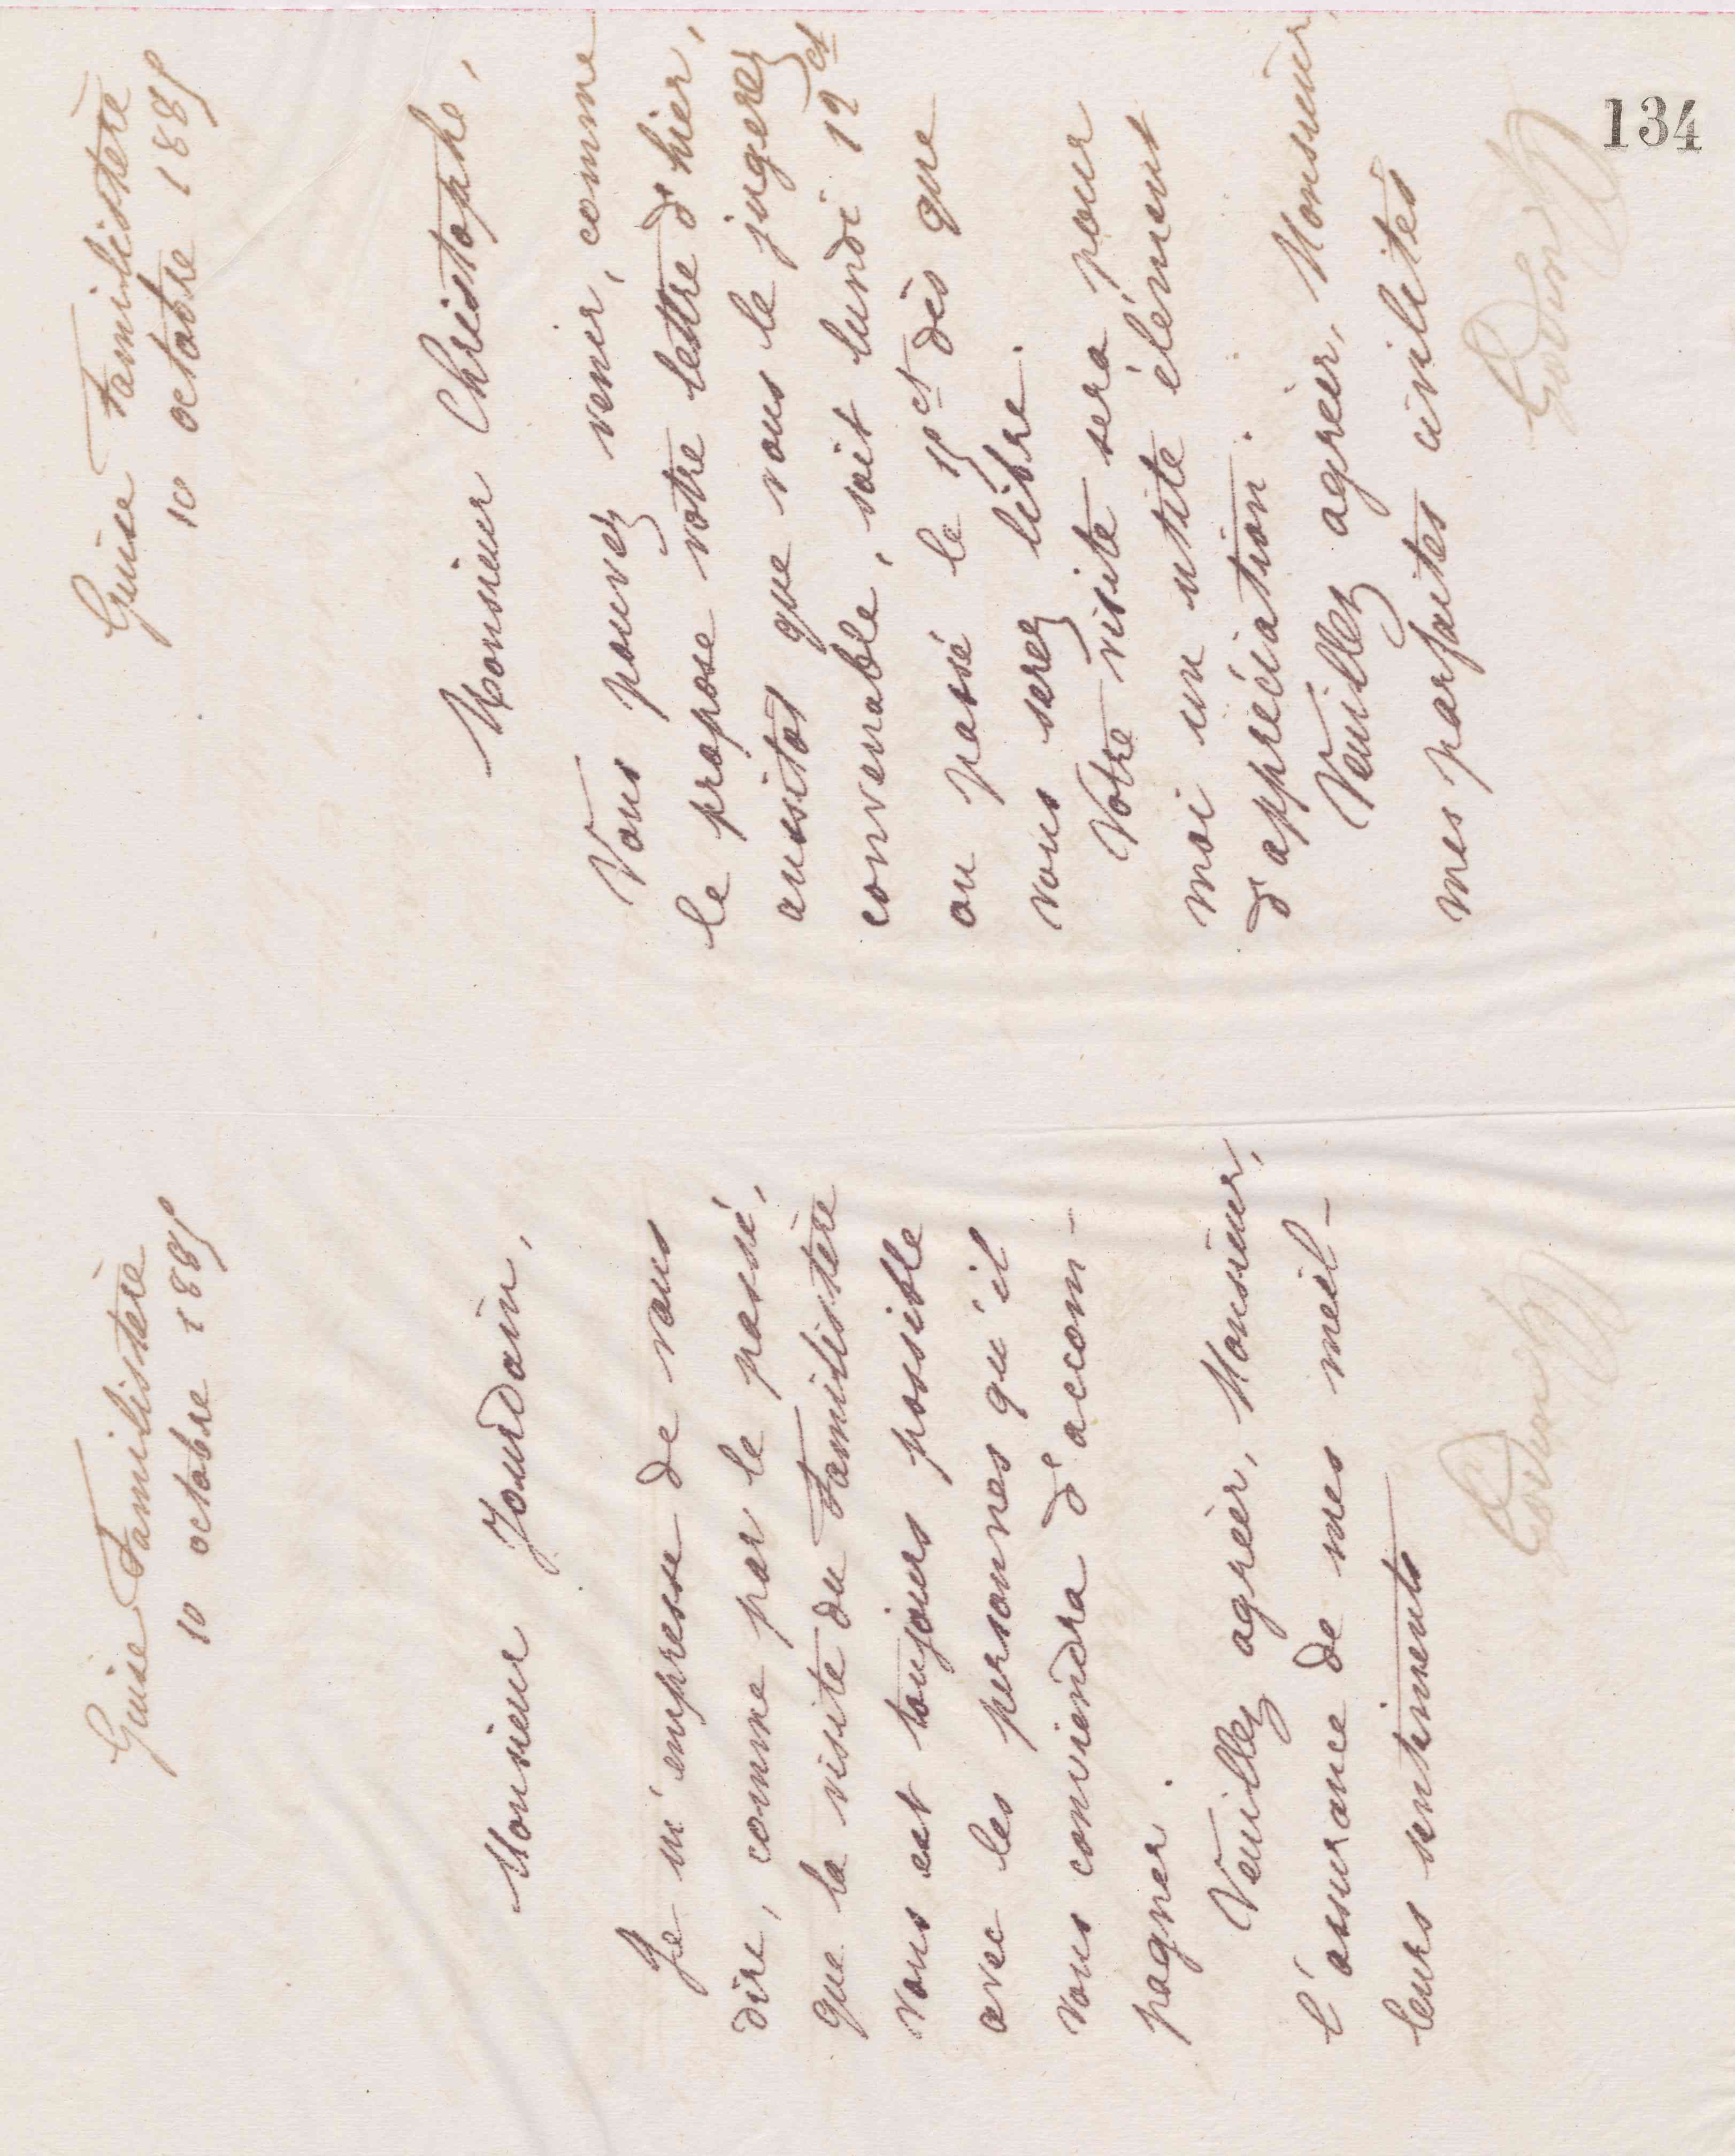 Guise Familistère
10 octobre 1885
Monsieur Jourdain,
Je m'empresse de vous
dire, comme par le passé,
que la visite du Familistère
vous est toujours possible
avec les personnes qu'il
vous conviendra d'accom-
pagner.
Veuillez agréer, Monsieur,
l'assurance de mes meil-
leurs sentiments
Godin
Guise Familistère
10 octobre 1885
Monsieur Christophe,
Vous pouvez venir, comme
le propose votre lettre d'hier,
aussitôt que vous le jugerez
convenable, soit lundi 12 ct
ou passé le 15 ct dès que
vous serez libre.
Votre visite sera pour
moi un utile élément
d'appréciation.
Veuillez agréer, Monsieur,
mes parfaites civilités
Godin
134